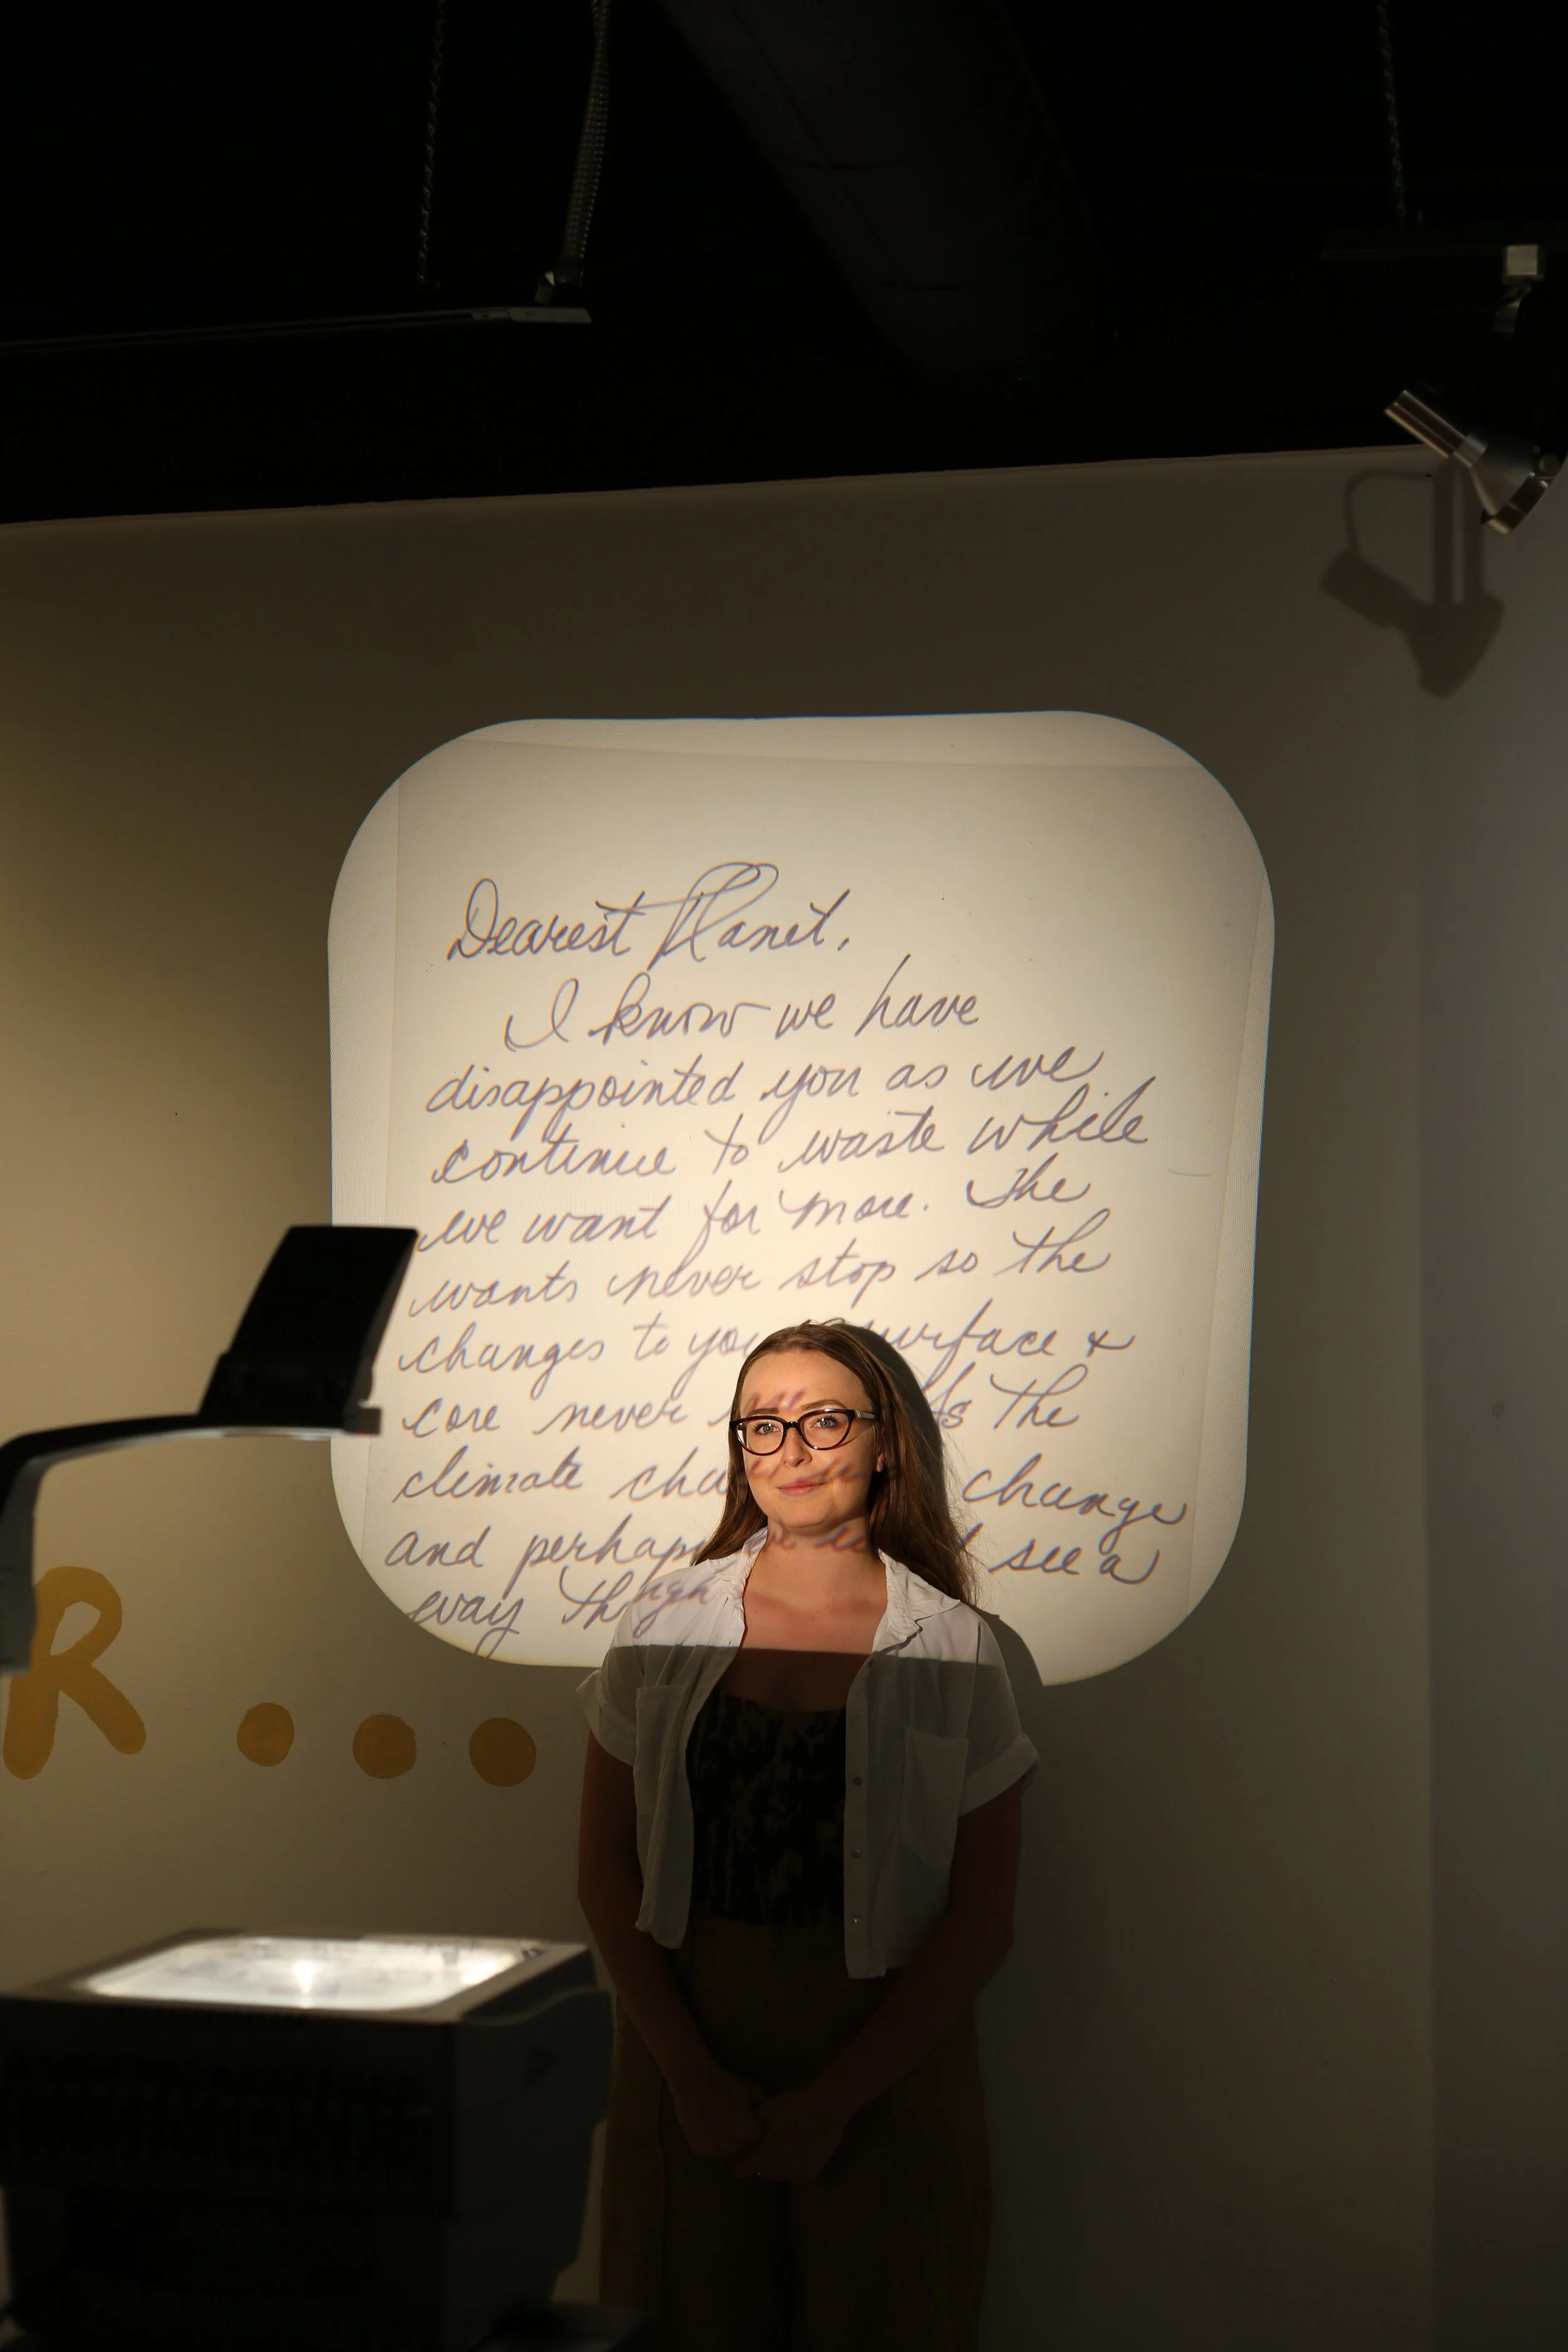 Dearest Planet,
I know we have
disappointed you as we
continue to waste while
we want for more. The
wants never stop so the
changes to you surface &
core never As the
climate cha change
and perhaps see a
way though
R...